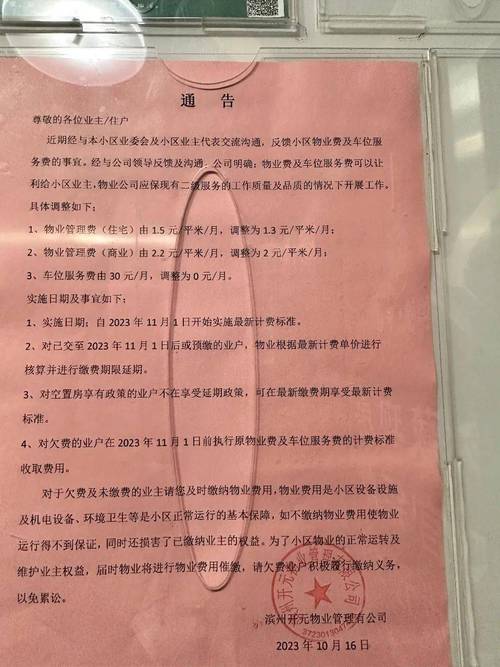 通 告
尊敬的各位业主/住户
近期经与本小区业委会及小区业主代表交流沟通，反馈小区物业费及车位服
务费的事宜。经与公司领导反馈及沟通，公司明确：物业费及车位服务费可以让
利给小区业主，物业公司应保现有二级服务的工作质量及品质的情况下开展工作。
具体调整如下：
1、物业管理费（住宅）由 1.5 元/平米/月，调整为 1.3 元/平米/月；
2、物业管理费（商业）由 2.2 元/平米/月，调整为 2 元/平米/月；
3、车位服务费由 30 元/月，调整为 0 元/月。
实施日期及事宜如下：
1、实施日期：自 2023 年 11 月 1 日开始实施最新计费标准。
2、对已交至 2023 年 11 月 1 日后或预缴的业户，物业根据最新计费单价进行
核算并进行缴费期限延期。
3、对空置房享有政策的业户不在享受延期政策，可在最新缴费期享受最新计费
标准。
4、对欠费的业户在 2023 年 11 月 1 日前执行原物业费及车位服务费的计费标准
收取费用。
对于欠费及未缴费的业主请您及时缴纳物业费用，物业费用是小区设备设施
及机电设备、环境卫生等是小区正常运行的基本保障，如不缴纳物业费用使物业
运行得不到保证，同时还损害了已缴纳业主的权益。为了小区物业的正常运转及
维护业主权益，届时物业将进行物业费用催缴，请欠费业户积极履行缴纳义务，
以免累讼。
滨州开元物业管理有公司
2023 年 10 月 16 日